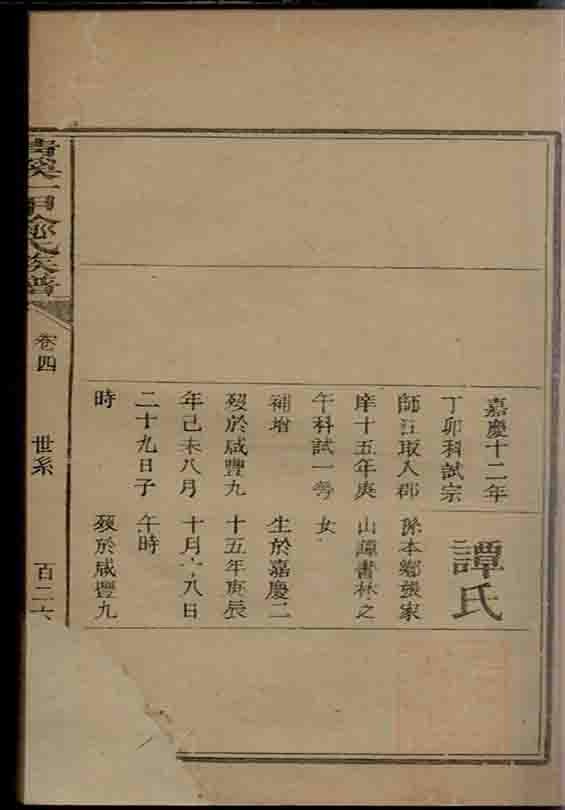 嘉慶十二年
丁卯科試宗
師汪取入郡
庠十五年庚
午科試一等
補增
歿於咸豐九
年己未八月
二十九日子
時
譚氏
係本鄉張家
山譚書林之
女
生於嘉慶二
十五年庚辰
十月八日
午時
歿於咸豐九
溪一甲氏族譜
卷四
世系
百二六